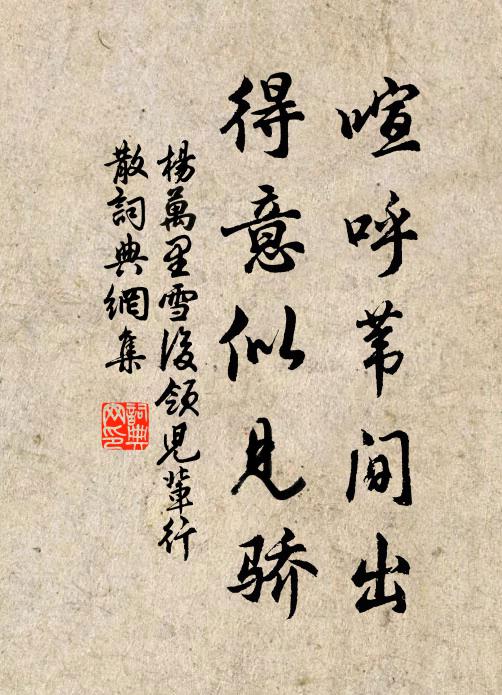 喧呼苇間出
得意似見骄
楊萬里雪後領兒輩行
散詞典網集
詞典网印